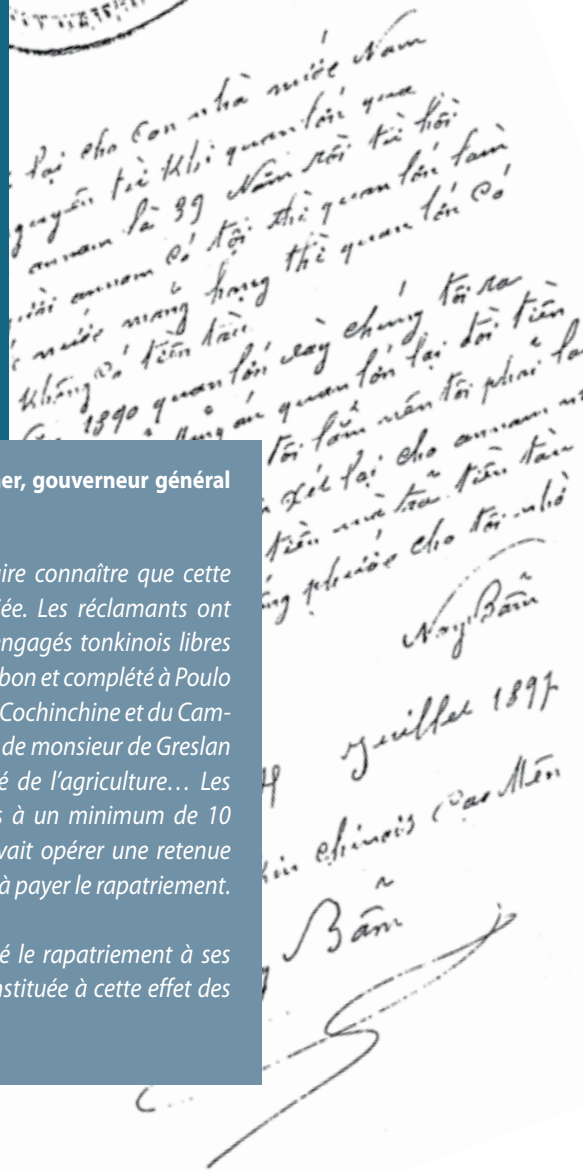 lại cho con nhà nước Nam
nguyên từ khi quan lớn qua
annam là 39 Năm rồi
annam có tội thì quan lớn làm
nước thì quan lớn có
không có tiền tàu
1890 quan lớn chúng tôi ra
quan lớn lại đòi tiền
tôi lắm nên tôi phải
xét lại cho annam
tiền mà trả tiền tàu
phước cho tôi nhờ
Bẩm
Juillet 1897
chinois Cao Mên
Bẩm
er, gouverneur général
ire connaître que cette
ée. Les réclamants ont
engagés tonkinois libres
bon et complété à Poulo
Cochinchine et du Cam-
de monsieur de Greslan
é de l'agriculture… Les
s à un minimum de 10
vait opérer une retenue
à payer le rapatriement.
é le rapatriement à ses
nstituée à cette effet des